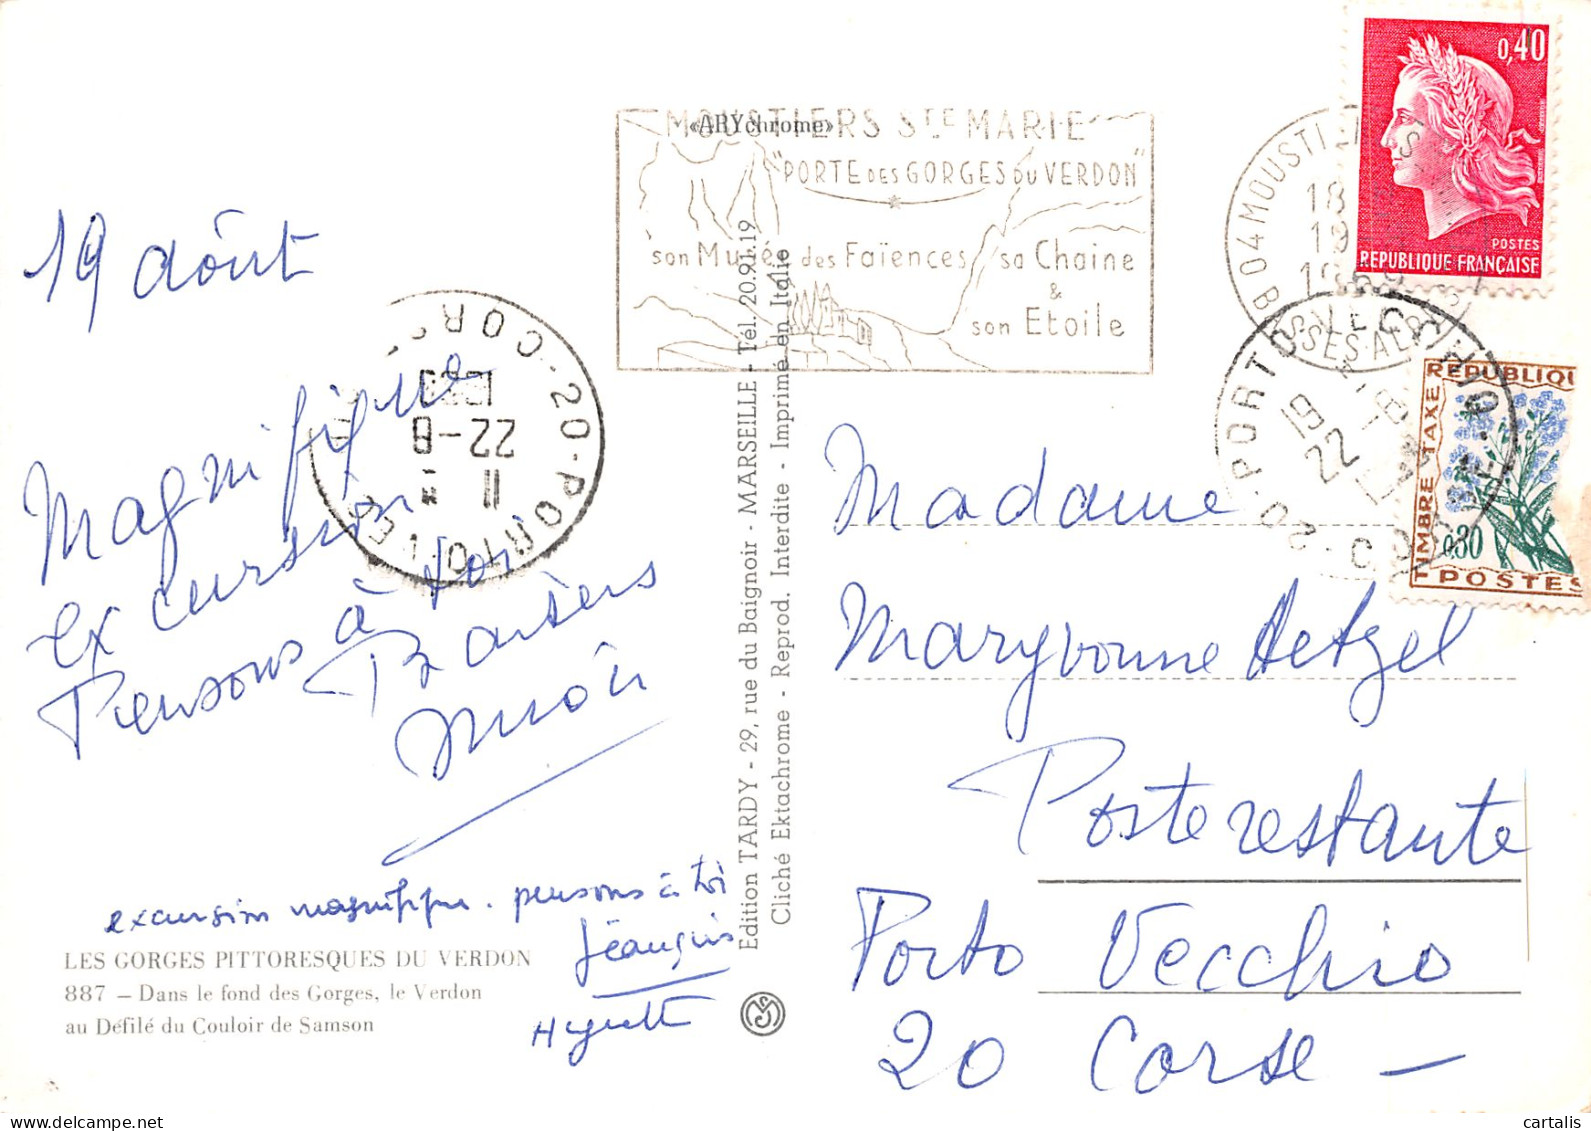 0,40
POSTES
REPUBLIQUE FRANÇAISE
MOUSTIERS STE MARIE
«ARYchrome»
"PORTE DES GORGES DU VERDON"
son Musée des Faïences sa Chaine
&
son Etoile
04 MOUSTI
18
19
1969
SSES-ALP
20-PORTO-VECCHIO
CORSE
19 H
22-8
20-PORTO-VEC
CORS
11 H
22-8
REPUBLIQU
TIMBRE TAXE
0,30
POSTES
19 août
Magnifique
excursion
Pensons à toi
Baisers
excursion magnifique. pensons à toi
Huguette
LES GORGES PITTORESQUES DU VERDON
887 — Dans le fond des Gorges, le Verdon
au Défilé du Couloir de Samson
Edition TARDY - 29, rue du Baignoir - MARSEILLE - Tél. 20.91.19
Cliché Ektachrome - Reprod. Interdite - Imprimé en Italie
Madame
Maryvonne Hetzel
Poste restante
Porto Vecchio
20 Corse —
cartalis